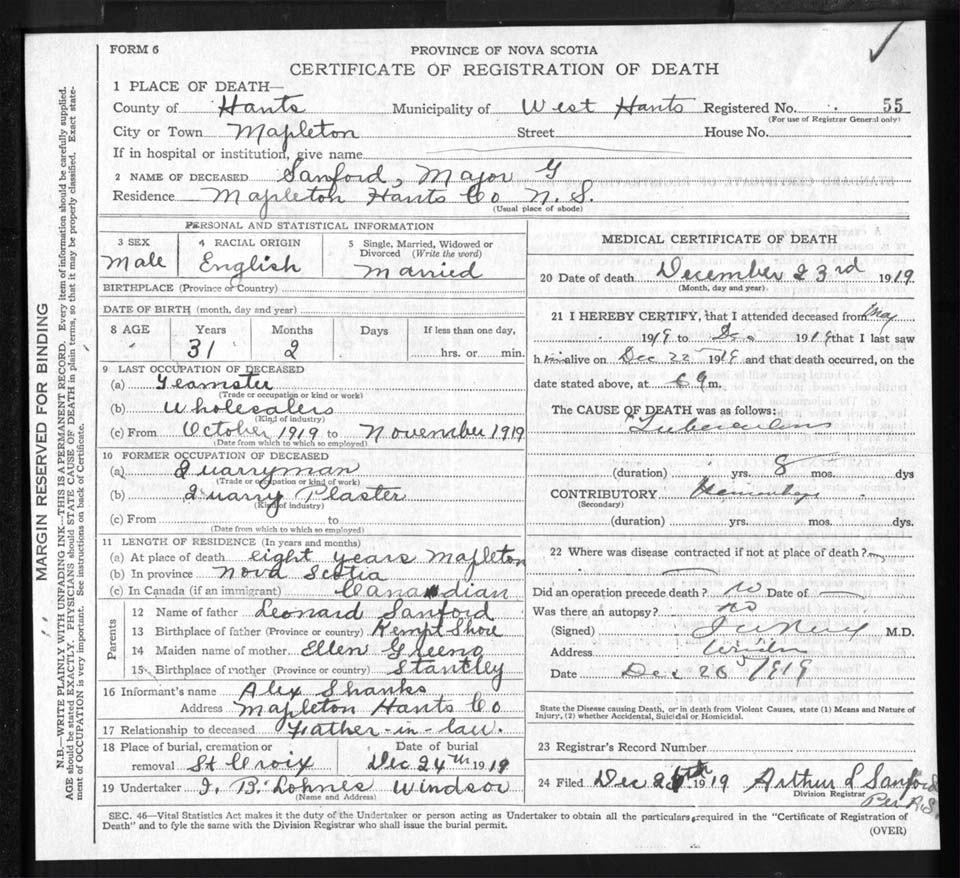 FORM 6
PROVINCE OF NOVA SCOTIA
CERTIFICATE OF REGISTRATION OF DEATH
1 PLACE OF DEATH—
County of Hants Municipality of West Hants Registered No. 55
(For use of Registrar General only)
City or Town Mapleton Street House No.
If in hospital or institution, give name
2 NAME OF DECEASED Sanford, Major G
Residence Mapleton Hants Co N. S.
(Usual place of abode)
PERSONAL AND STATISTICAL INFORMATION
3 SEX Male
4 RACIAL ORIGIN English
5 Single, Married, Widowed or Divorced (Write the word) Married
BIRTHPLACE (Province or Country)
DATE OF BIRTH (month, day and year)
8 AGE Years Months Days If less than one day,
31 2 hrs. or min.
9 LAST OCCUPATION OF DECEASED
(a) Teamster
(Trade or occupation or kind or work)
(b) Wholesalers
(Kind of industry)
(c) From October 1919 to November 1919
(Date from which to which so employed)
10 FORMER OCCUPATION OF DECEASED
(a) Quarryman
(Trade or occupation or kind of work)
(b) Quarry Plaster
(Kind of industry)
(c) From to
(Date from which to which so employed)
11 LENGTH OF RESIDENCE (In years and months)
(a) At place of death eight years Mapleton
(b) In province Nova Scotia
(c) In Canada (if an immigrant) Canadian
Parents
12 Name of father Leonard Sanford
13 Birthplace of father (Province or country) Kempt Shore
14 Maiden name of mother Ellen Greeno
15 Birthplace of mother (Province or country) Stantley
16 Informant's name Alex Shanks
Address Mapleton Hants Co
17 Relationship to deceased Father-in-law.
18 Place of burial, cremation or removal St Croix
Date of burial Dec 24th 1919
19 Undertaker I. B. Lohnes Windsor
(Name and Address)
MEDICAL CERTIFICATE OF DEATH
20 Date of death December 23rd 1919
(Month, day and year)
21 I HEREBY CERTIFY, that I attended deceased from May
1919 to Dec 1919 that I last saw
him alive on Dec 22 1919 and that death occurred, on the
date stated above, at m.
The CAUSE OF DEATH was as follows:
Tuberculosis
(duration) yrs. 8 mos. dys
CONTRIBUTORY Hemorrhage
(Secondary)
(duration) yrs. mos. dys.
22 Where was disease contracted if not at place of death?
Did an operation precede death? no Date of
Was there an autopsy? no
(Signed) M.D.
Address Windsor
Date Dec 1919
State the Disease causing Death, or in death from Violent Causes, state (1) Means and Nature of
Injury, (2) whether Accidental, Suicidal or Homicidal.
23 Registrar's Record Number
24 Filed Dec 1919 Arthur L Sanford
Division Registrar
Per A.S.
SEC. 46—Vital Statistics Act makes it the duty of the Undertaker or person acting as Undertaker to obtain all the particulars required in the "Certificate of Registration of
Death" and to fyle the same with the Division Registrar who shall issue the burial permit.
(OVER)
MARGIN RESERVED FOR BINDING
N.B.—WRITE PLAINLY WITH UNFADING INK—THIS IS A PERMANENT RECORD. Every item of information should be carefully supplied.
AGE should be stated EXACTLY. PHYSICIANS should STATE CAUSE OF DEATH in plain terms, so that it may be properly classified. Exact state-
ment of OCCUPATION is very important. See instructions on back of Certificate.